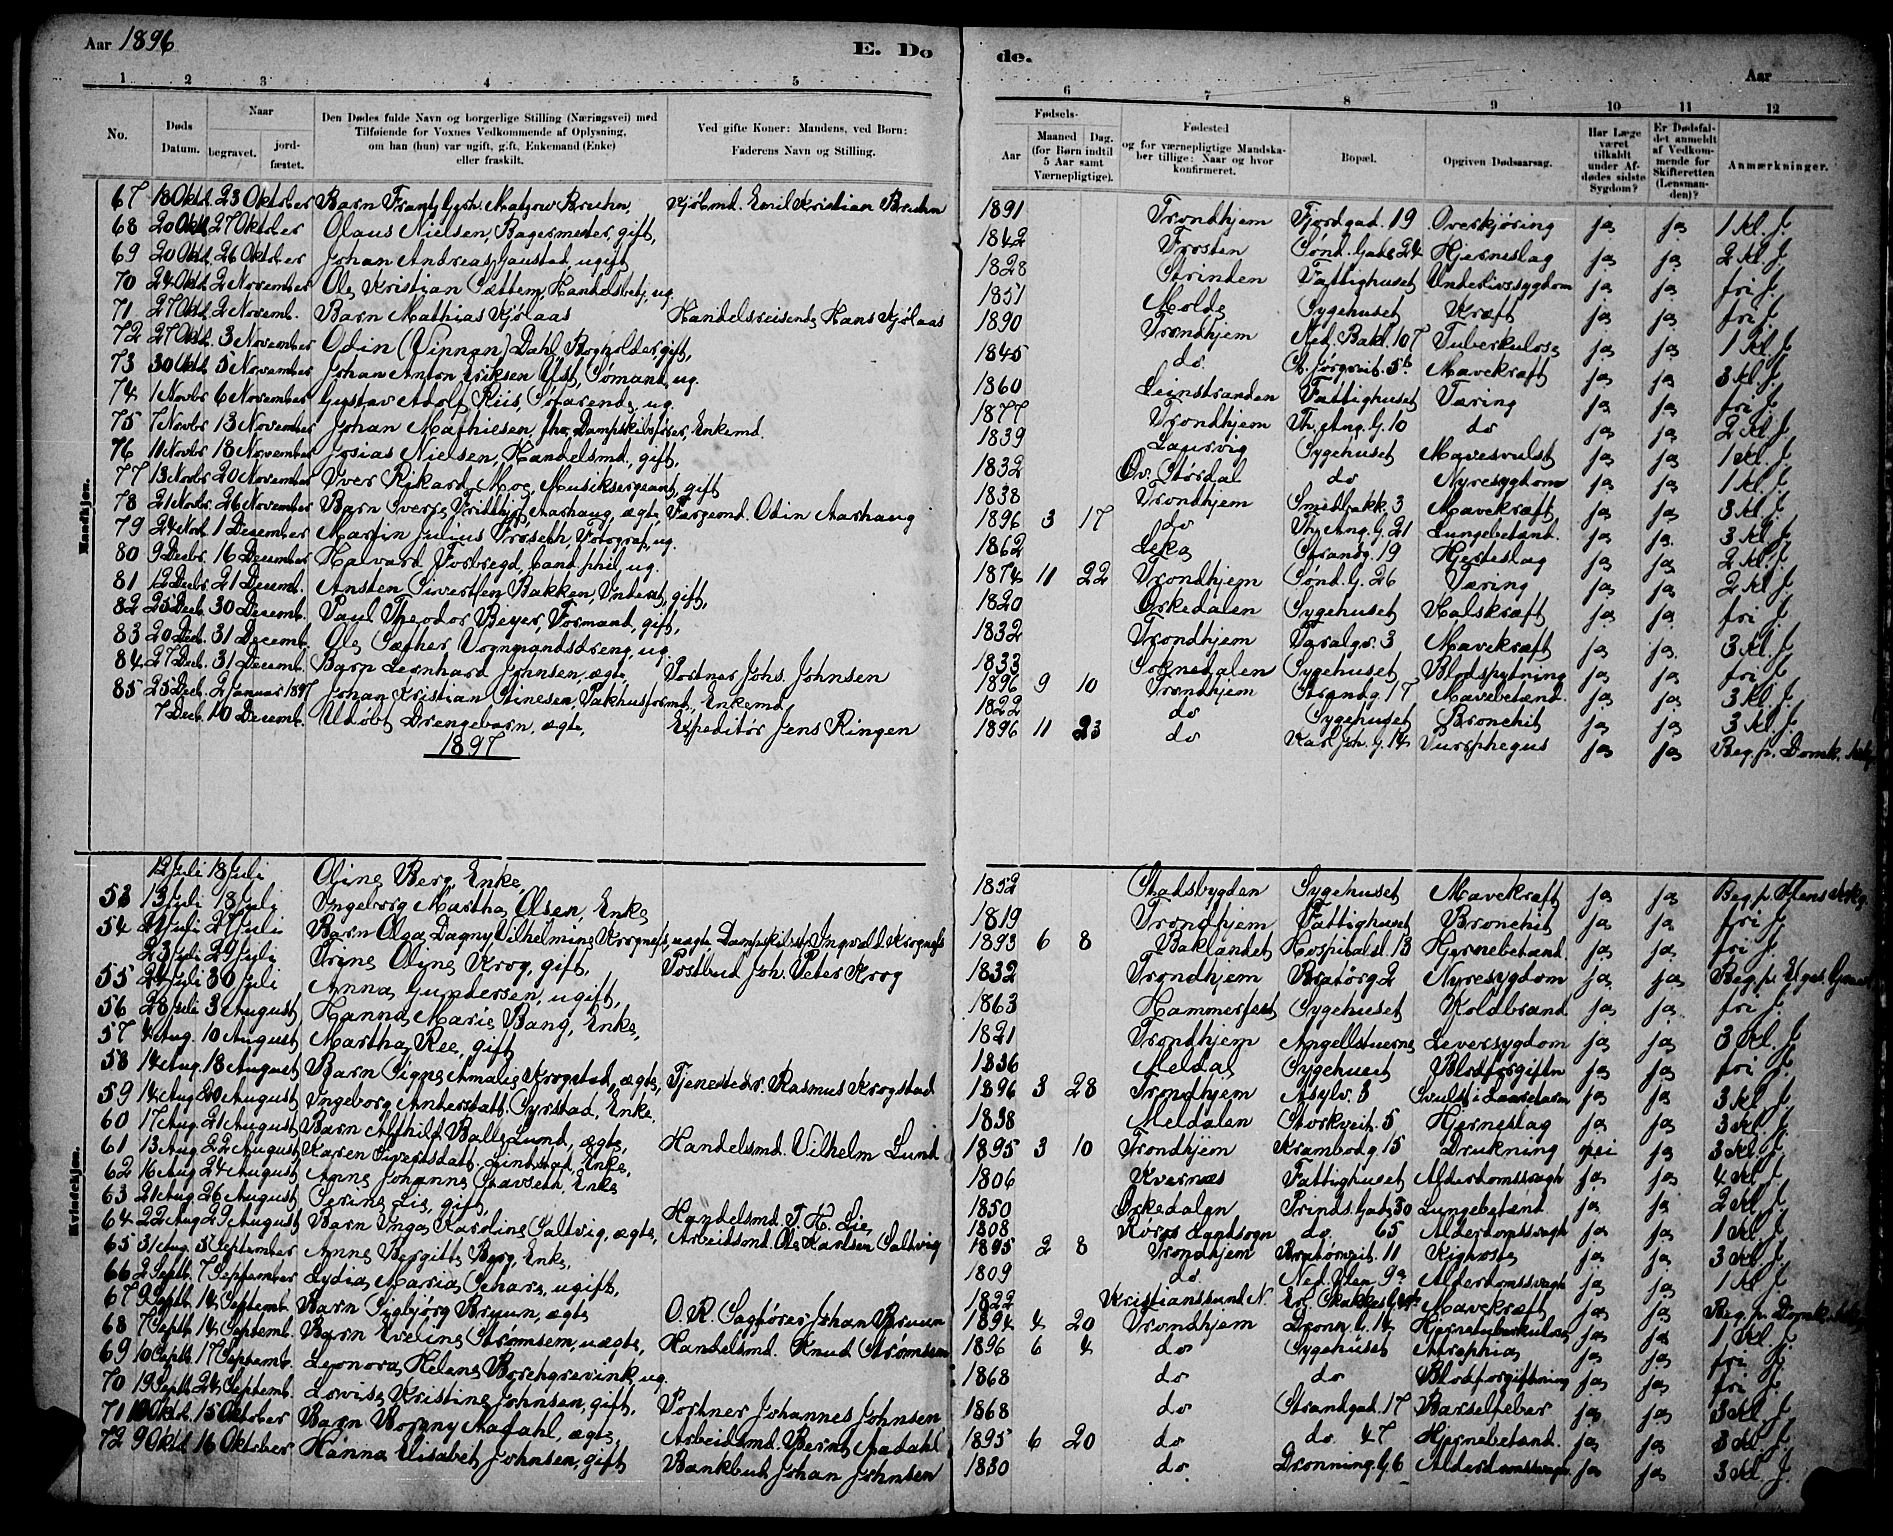 Aar 1896
E. Do
de.
Aar
1 2 3 4 5
6 7 8 9 10 11 12
No.
Døds Datum.
Naar
begravet.
jord-fæstet.
Den Dødes fulde Navn og borgerlige Stilling (Næringsvei) med
Tilføiende for Voxnes Vedkommende af Oplysning,
om han (hun) var ugift, gift, Enkemand (Enke)
eller fraskilt.
Ved gifte Koner: Mandens, ved Børn:
Faderens Navn og Stilling.
Fødsels-
Aar
Maaned Dag.
(for Børn indtil
5 Aar samt
Værnepligtige).
Fødested
og for værnepligtige Mandska-
ber tillige: Naar og hvor
konfirmeret.
Bopæl.
Opgiven Dødsaarsag.
Har Læge
været
tilkaldt
under Af-
dødes sidste
Sygdom?
Er Dødsfal-
det anmeldt
af Vedkom-
mende for
Skifteretten
(Lensman-
den)?
Anmærkninger.
Mandkjøn.
67 18 Oktb. 23 Oktober Barn Bruhn, Kjøbmd. Emil Kristian Bruhn 1891 Trondhjem Fjordgad. 19 Overkjøring ja ja 1 Kl. J.
68 20 Oktb. 27 Oktober Olaus Nielsen, Bagermester, gift, 1842 Frosten Sønd. Gade 24 Hjerneslag ja ja 2 Kl. J.
69 20 Oktb. 26 Oktober Johan Andreas Gaustad, ugift 1828 Strinden Fattighuset Underlivssygdom ja ja fri J.
70 24 Oktb. 2 November Ole Kristian Sættem, Handelsbetj. ug. 1851 Molde Sygehuset Kræft ja ja fri J.
71 27 Oktb. 2 Novemb. Barn Mathias Kjølaas Handelsreisende Hans Kjølaas 1890 Trondhjem Ned. Bakl. 107 Tuberkulose ja ja 1 Kl. J.
72 27 Oktb. 3 November Odin Dahl, Bogholder, gift, 1845 do. St. Jørgsveit. 5b Mavekræft ja ja 3 Kl. J.
73 30 Oktb. 5 November Johan Anton Eriksen Ust, Sømand, ug. 1860 Leinstranden Fattighuset Tæring ja ja fri J.
74 1 Novbr 6 November Gustav Adolf Riis, Søfarende, ug. 1877 Trondhjem Th. Ang. G. 10 do ja ja 2 Kl. J.
75 7 Novbr 13 November Johan Mathiesen, fhv. Dampskibsfører, Enkemd. 1839 Laurvig Sygehuset Mavesvulst ja ja 1 Kl. J.
76 11 Novbr 18 November Josias Nielsen, Handelsmd., gift, 1832 Øv. Størdal do Nyresygdom ja ja 1 Kl. J.
77 13 Novbr 20 November Iver Rikard Moe, Musiksergeant, gift 1838 Trondhjem Smedbakk. 3 Mavekræft ja ja 3 Kl. J.
78 21 Novbr. 26 November Barn Sverre Fridtjof Aarhaug, ægte, Færgemd. Odin Aarhaug 1896 3 17 do Th. Ang. G. 21 Lungebetænd. ja ja 3 Kl. J.
79 24 Nov. 1 December Martin Julius Trøseth, Fotograf, ug. 1862 Leka Strandg. 19 Hjerteslag ja ja 2 Kl. J.
80 9 Decbr. 16 December Halvard Forbregd, cand. phil, ug. 1874 11 22 Trondhjem Sønd. G. 26 Tæring ja ja 2 Kl. J.
81 12 Decbr. 21 Decemb. Ansten Sivertsen Bakken, Inderst, gift, 1820 Orkedalen Sygehuset Halskræft ja ja fri J.
82 25 Decb. 30 Decemb. Paul Theodor Beyer, Formand, gift, 1832 Trondhjem 3 Mavekræft ja ja 3 Kl. J.
83 20 Decb. 31 Decemb. Ole Sæther, Vognmandsdreng, ug. 1833 Soknedalen Sygehuset Blodspytning ja ja fri J.
84 27 Decb. 31 Decemb. Barn Leonhard Johnsen, ægte, Portner Johs. Johnsen 1896 9 10 Trondhjem Strandg. 17 Mavebetænd. ja ja 3 Kl. J.
85 25 Decb. 2 Januar 1897 Johan Kristian Stinesen, Pakhusformd., Enkemd. 1822 do Sygehuset Bronchit ja ja 3 Kl. J.
7 Decb. 10 Decemb. Udøbt Drengebarn, ægte, Expeditør Jens Ringen 1896 11 23 do Karl Joh. G. 14 ja ja Beg. p. Domk.
1897
Kvindekjøn.
12 Juli 18 Juli Oline Berg, Enke, 1852 Stadsbygden Sygehuset Mavekræft ja ja Beg. p.
53 13 Juli 18 Juli Ingeborg Martha Olsen, Enke 1819 Trondhjem Fattighuset Bronchit ja ja fri J.
54 21 Juli 27 Juli Barn Olga Dagny Vilhelmine Krognefs, uægte, Ingvald Krognefs 1893 6 8 Baklandet Hospitalsl. 13 Hjernebetænd. ja ja fri J.
23 Juli 29 Juli Trine Oline Krog, gift, Postbud Joh. Peter Krog 1832 Trondhjem Bratørg. 2 Nyresygdom ja ja Beg. p.
55 24 Juli 30 Juli Anna Gundersen, ugift, 1863 Hammerfest Sygehuset Koldbrand ja ja fri J.
56 28 Juli 3 August Hanna Marie Bang, Enke, 1821 Trondhjem Angellstuerne Leversygdom ja ja 3 Kl. J.
57 4 Aug. 10 August Martha Ree, gift 1836 Meldal Sygehuset Blodforgiftn ja ja fri J.
58 14 Aug. 18 August Barn Signe Amalie Krogstad, ægte, Tjenestedr. Rasmus Krogstad 1896 3 28 Trondhjem Asylv. 3 Svulst i ja ja 3 Kl. J.
59 14 Aug 20 August Ingeborg Andersdatt. Syrstad, Enke, 1838 Meldalen Storkveit. 5 Hjerneslag ja ja 3 Kl. J.
60 17 Aug. 21 August Barn Alfhild Balle Lund, ægte, Handelsmd. Vilhelm Lund 1895 3 10 Trondhjem Krambodg. 15 Drukning nei ja 3 Kl. J.
61 13 Aug. 22 August Karen Sivertsdatt. Lindstad, Enke, 1806 Kvernæs Fattighuset Alderdomssvagh ja ja 4 Kl. J.
62 16 Aug 24 August Anne Johanne Stavseth, Enke 1850 Orkedalen Prinds. Gade 30 Lungebetænd. ja ja 2 Kl. J.
63 21 Aug. 26 August Serine Lie, gift, Handelsmd. T. H. Lie 1808 Røros Landsogn do. 65 Alderdomssvagh ja ja 1 Kl. J.
64 22 Aug 29 August Barn Inga Karoline Saltvig, ægte, Arbeidsmd. Ole Karlsen Saltvig 1895 2 8 Trondhjem Bratørveit. 11 Kighoste ja ja 3 Kl. J.
65 31 Aug. 5 September Anne Bergitte Berg, Enke, 1809 do. Ned. Ilen 9a Alderdomssvagh ja ja 1 Kl. J.
66 2 Septb. 7 September Lydia Maria Schare, ugift, 1822 Kristianssund N. Erl. Mavekræft ja ja Beg. p. Domk.
67 9 Septb. 14 Septemb. Barn Sigbjørg Bruun, ægte O. R. Sagfører Johan Bruun 1894 4 20 Trondhjem Dronn. G. 14 Hjernetuberkulose ja ja 1 Kl. J.
68 7 Septb. 14 Septemb. Barn Eveline Strømsem, uægte, Handelsmd. Knud Strømsem 1896 6 4 do Sygehuset Atrophia ja ja fri J.
69 10 Septb. 17 Septemb. Leonora Helene Borchgrevink, ug. 1868 do do Blodforgiftning ja ja fri J.
70 19 Septb. 24 Septemb. Lovise Kristine Johnsen, gift, Portner Johannes Johnsen 1868 do Strandgad. 17 Barselfeber ja ja 3 Kl. J.
71 10 Oktb. 15 Oktober Barn Borgny Aadahl, ægte, Arbeidsmd. Bernt Aadahl 1895 6 20 do do. 47 Hjernebetænd. ja ja 3 Kl. J.
72 9 Oktb. 16 Oktober Hanna Elisabet Johnsen, gift Bankbud Johan Johnsen 1830 do. Dronning. G. 6 Alderdomssvagh. ja ja 3 Kl. J.